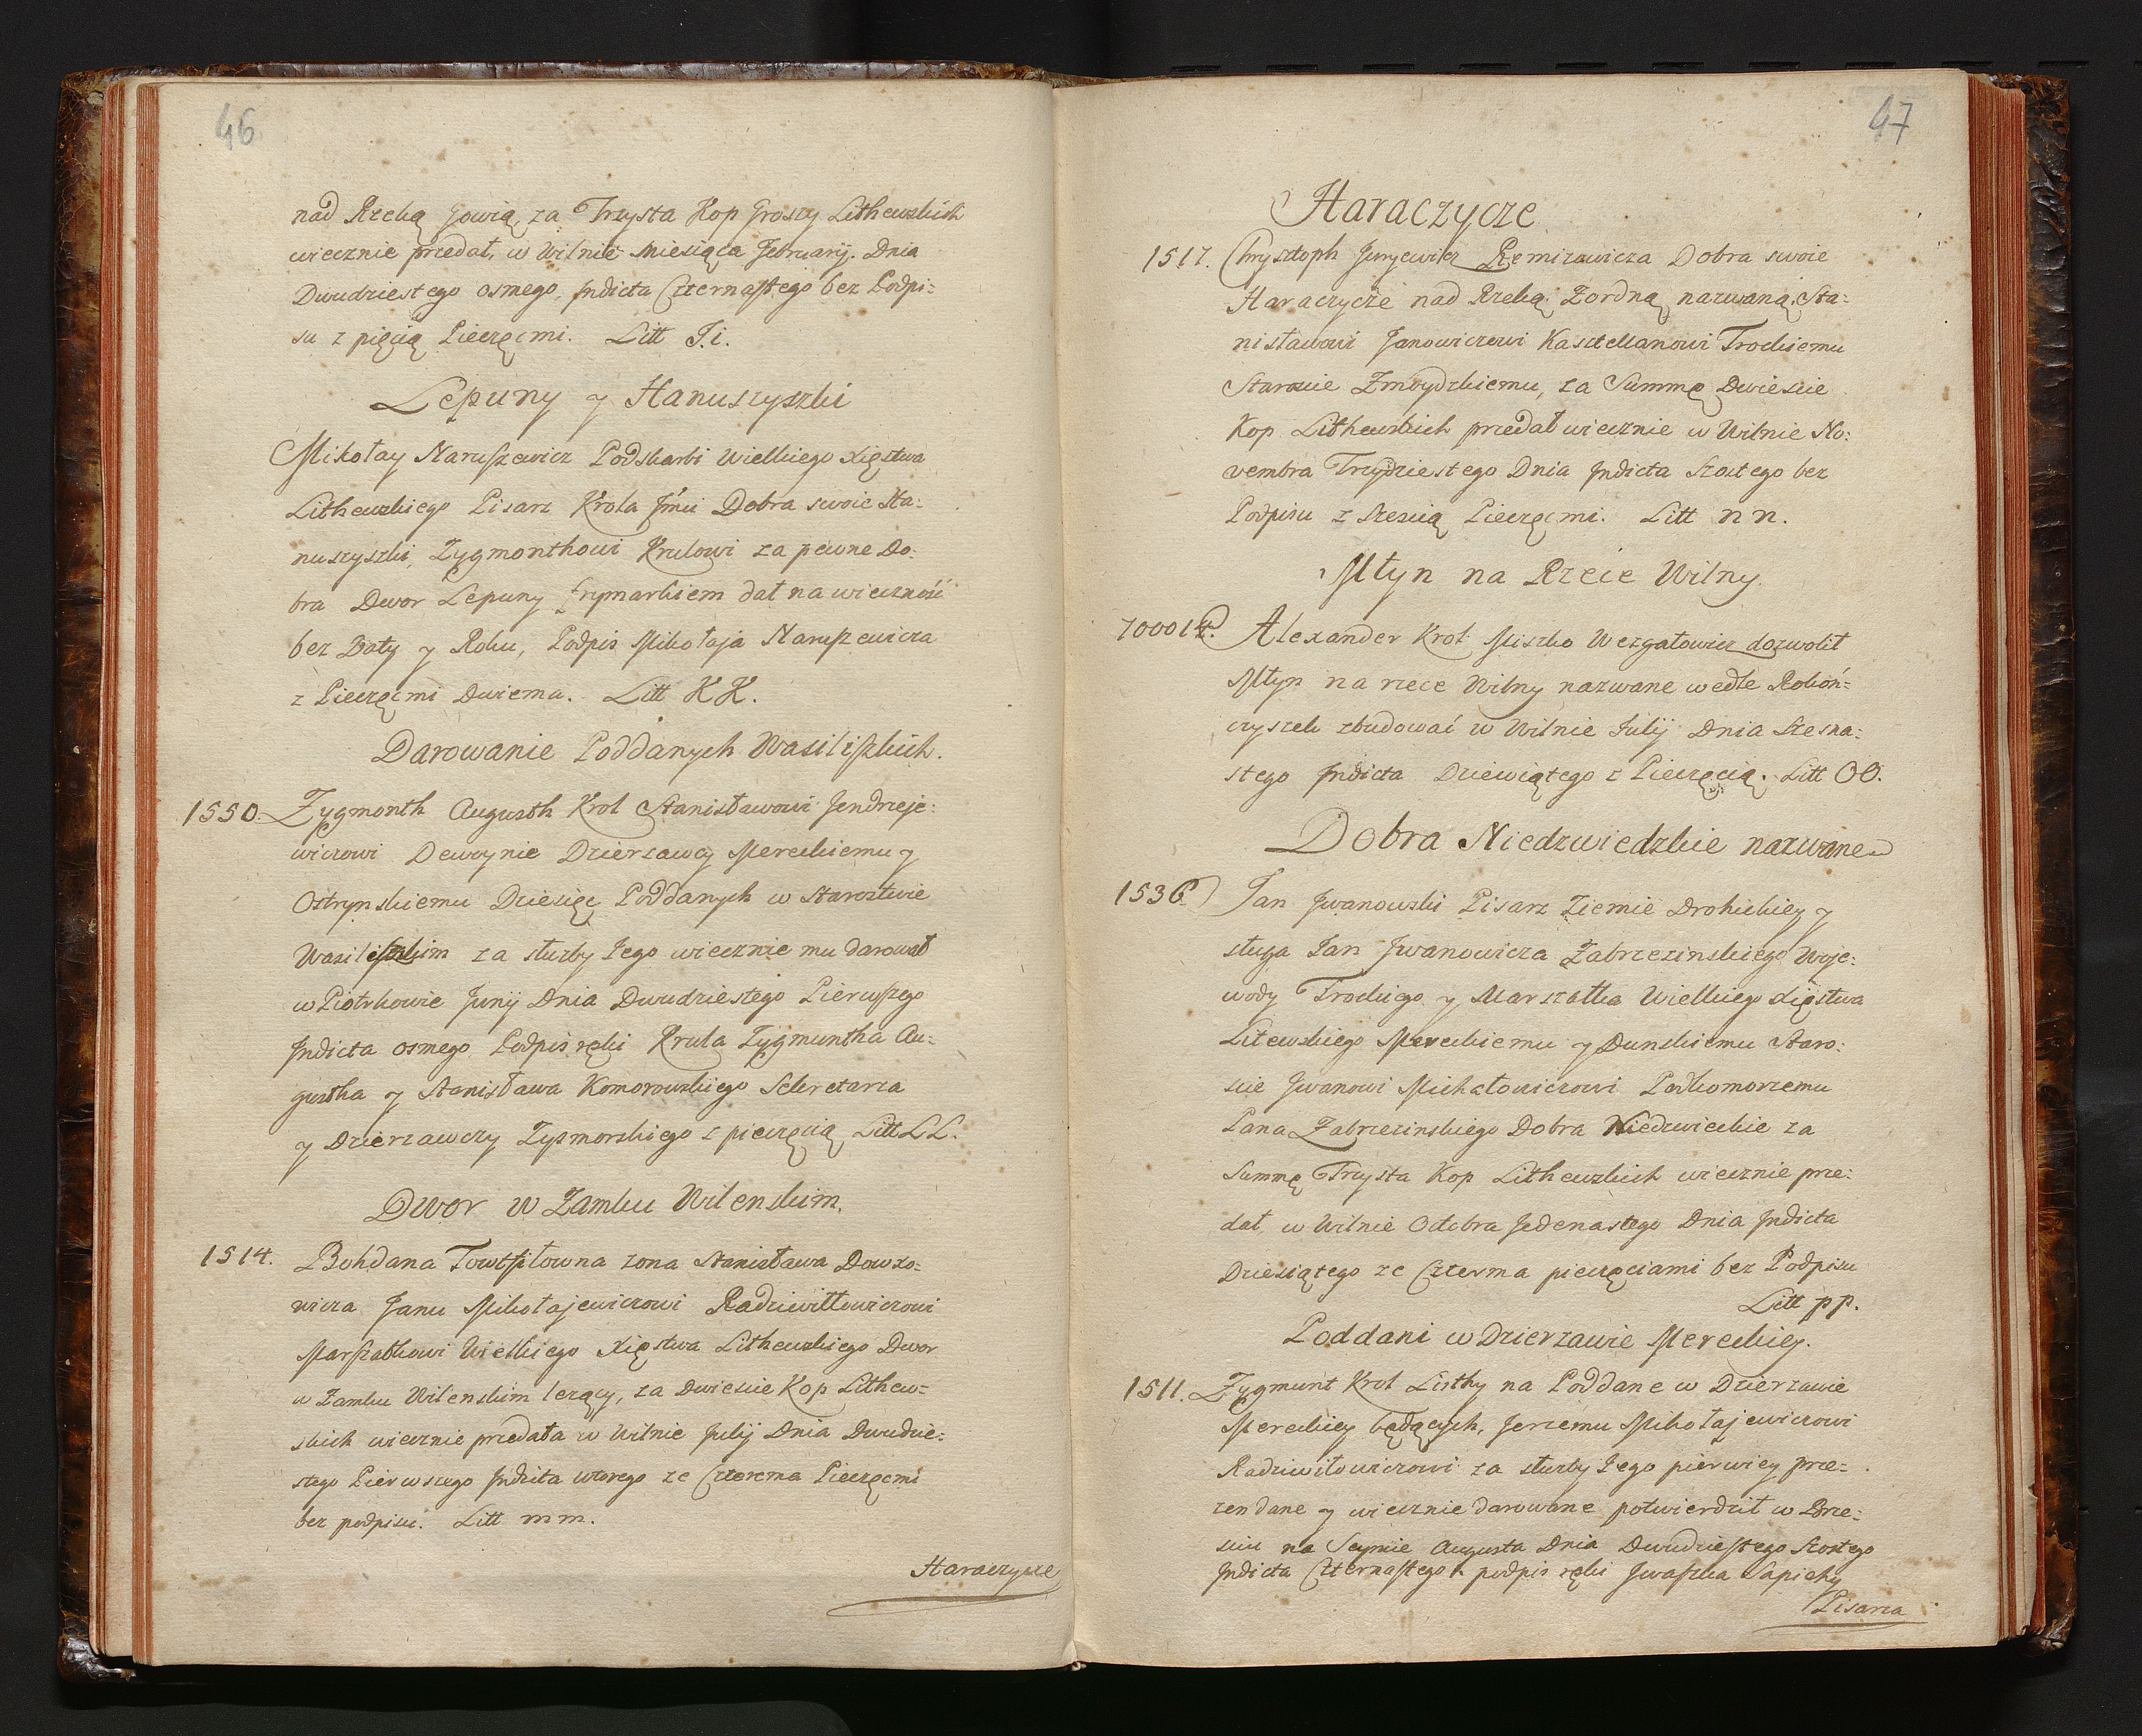 46
nad Rzeką Jowią, za Trzysta Kop Groszy Lithewskich
wiecznie przedał, w Wilnie Miesiąca February. Dnia
Dwudziestego osmego, Indicta Czternastego bez Podpi:
su z pięcią Pieczęcmi. Litt J.i.
Lepuny y Hanuszyszki
Mikołay Naruszewicz Podskarbi Wielkiego Xięstwa
Lithewskiego Pisarz Krola Jmci Dobra swoie Ha:
nuszyszki, Zygmonthowi Krulowi za pewne Do:
bra Dwor Lepuny frymarkiem dał na wieczność
bez Daty y Roku, Podpis Mikołaja Naruszewicza
z Pieczęcmi Dwiema. Litt KK.
Darowanie Poddanych Wasiliszkich.
1550. Zygmonth Augusth Krol Stanisławowi Jendrzeje:
wiczowi Dewoynie Dzierzawcy Mereckiemu y
Ostrynskiemu Dziesięc Poddanych w Starostwie
Wasiliszkim za służby Jego wiecznie mu darował
w Piotrkowie Junij Dnia Dwudziestego Pierwszego
Indicta osmego Podpis ręki Krula Zygmuntha Au:
gustha y Stanisława Komorowskiego Sekretarza
y Dzierzawczy Zyzmorskiego z pieczęcią Litt LL.
Dwor w Zamku Wilenskim.
1514. Bohdana Towtsiłowna zona Stanisława Dowxo:
wicza Janu Mikołajewiczowi Radziwiłłowiczowi
Marszałkowi Wielkiego Xięstwa Lithewskiego Dwor
w Zamku Wilenskim lezący, za Dwiescie Kop Lithew:
skich wiecznie przedała w Wilnie Julij Dnia Dwudzie:
stego Pierwszego Indicta wtorego ze Czterema Pieczęcmi
bez podpisu. Litt mm.
Haraczycze
47
Haraczycze
1517. Chrysztoph Juryewicz Remizowicza Dobra swoie
Haraczycze nad Rzeką Zordną nazwaną, Sta:
nisławowi Janowiczowi Kasztellanowi Trockiemu
Staroscie Zmoydzkiemu, za Summę Dwiescie
Kop Lithewskich przedał wiecznie w Wilnie No:
vembra Trzydziestego Dnia Indicta Szostego bez
Podpisu z Szescią Pieczęcmi. Litt nn.
Młyn na Rzece Wilny.
Alexander Krol Miszko Wezgałowicz dozwolił
Młyn na rzece Wilny nazwane wedle Rokoń:
czyszek zbudować w Wilnie Julij Dnia Szesna:
stego Indicta Dziewiątego z Pieczęcią. Litt OO.
Dobra Niedzwiedzkie nazwane
1536 Jan Iwanowski Pisarz Ziemie Drohickiey y
sługa Jan Iwanowicza Zabrzezinskiego Woje:
wody Trockiego y Marszałka Wielkiego Xięstwa
Litewskiego Mereckiemu y Dunskiemu Staro:
scie Iwanowi Michałowiczowi Podkomorzemu
Pana Zabrzezinskiego Dobra Niedzwieckie za
Summę Trzysta Kop Lithewskich wiecznie prze:
dał w Wilnie Octobra Jedenastego Dnia Indicta
Dziesiątego ze Czterma pieczęciami bez Podpisu
Litt pp.
Poddani w Dzierzawie Mereckiey.
1511. Zygmunt Krol Listhy na Poddane w Dzierzawie
Mereckiey będących, Jerzemu Mikołajewiczowi
Radziwiłowiczowi za służby Jego pierwiey prze:
zendane y wiecznie darowane potwierdził w Brze:
sciu na Seymie Augusta Dnia Dwudziestego Szostego
Indicta Czternastego podpis ręki Iwaszka Sapiehy
Pisarza